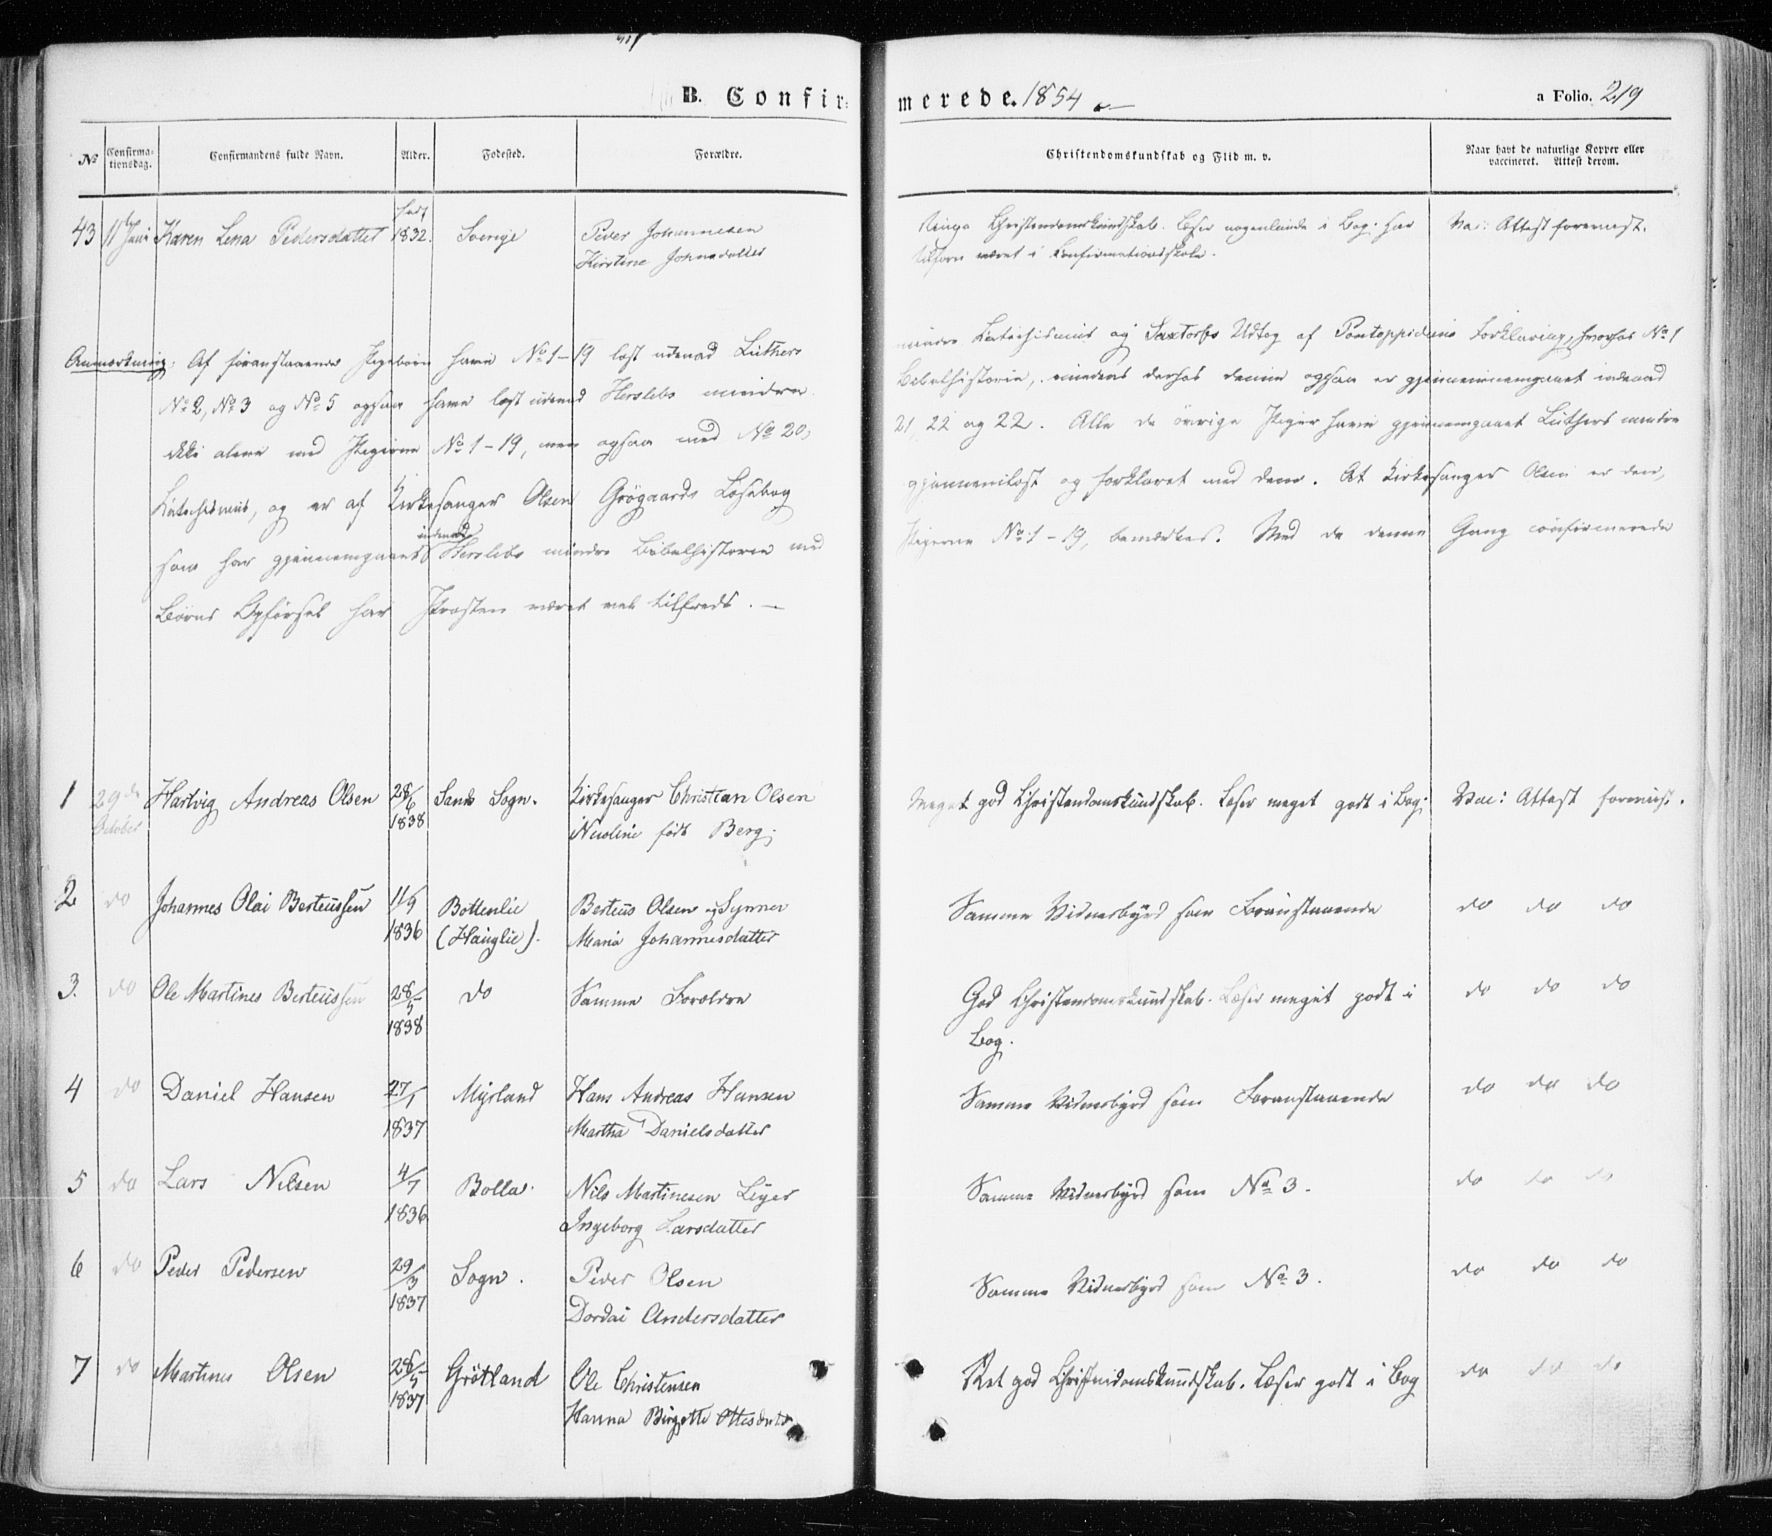 B. Confirmerede. 1854
a Folio. 219
No Confirmationsdag. Confirmandens fulde Navn. Alder. Fødested. Forældre. Christendomskundskab og Flid m. v. Naar havt de naturlige Kopper eller vaccineret. Attest derom.
43 11 Juni Karen Lena Pedersdatter født 1832. Sverige Peder Johannesen Ringe Christendomskundskab. Læser nogenlunde i Bog. har Vac: Attest forevist.
Kirstine Johnsdatter været i Confirmationsskole.
Anmærkning: Af foranstaaende Pigebørn have No 1-19 læst udenad Luthers mindre Katechismus og Saxtorfs Udtog af Pontoppidans Forklaring, hvorhos No 1
No 2, No 3 og No 5 ogsaa have læst udenad Herslebs mindre Bibelhistorie, denne ogsaa er gjennemgaaet udenad
ikke alene med Pigerne No 1-19, men ogsaa med No 20, 21, 22 og 22. Alle de øvrige Piger have gjennemgaaet Luthers mindre
Katechismus, og er af Kirkesanger Olsen Grøgaards Læsebog gjennemlæst og forklaret med dem. At Kirkesanger Olsen er den,
som har gjennemgaaet udenad Herslebs mindre Bibelhistorie med Pigerne No 1-19, bemærkes. Med de denne Gang confirmerede
Børns Opførsel har Præsten været vel tilfreds. —
1 29de October Hartvig Andreas Olsen 28/6 1838 Sands Sogn. Kirkesanger Christian Olsen Meget god Christendomskundskab. Læser meget godt i Bog. Vac: Attest forevist.
Nicoline født Berg.
2 do Johannes Olai Berteussen 11/9 1836 Bottenlie (Hauglie). Berteus Olsen og Synner Samme Vidnesbyrd som Foranstaaende do do do
Maria Johannesdatter
3. do Ole Martines Berteussen 28/5 1838 do Samme Forældre God Christendomskundskab. Læser meget godt i do do do
Bog.
4 do Daniel Hansen 27/1 1837 Myrland Hans Andreas Hansen Samme Vidnesbyrd som Foranstaaende do do do
Martha Danielsdatter
5 do Lars Nilsen 4/7 1836 Bolla. Nils Martinesen Leger Samme Vidnesbyrd som No 3. do do do
Ingeborg Larsdatter
6 do Peder Pedersen 29/3 1837 Sogn. Peder Olsen Samme Vidnesbyrd som No 3. do do do
Dordai Andersdatter
7 do Martines Olsen 28/5 1837 Grötland Ole Christensen Ret god Christendomskundskab. Læser godt i Bog do do do
Hanna Birgette Ottesdatr